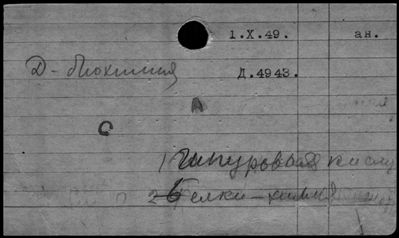 1.X.49. ан.
Д - биохимия Д.4943.
А
С
1) Гиппуровая кисл
2) Белки - химия